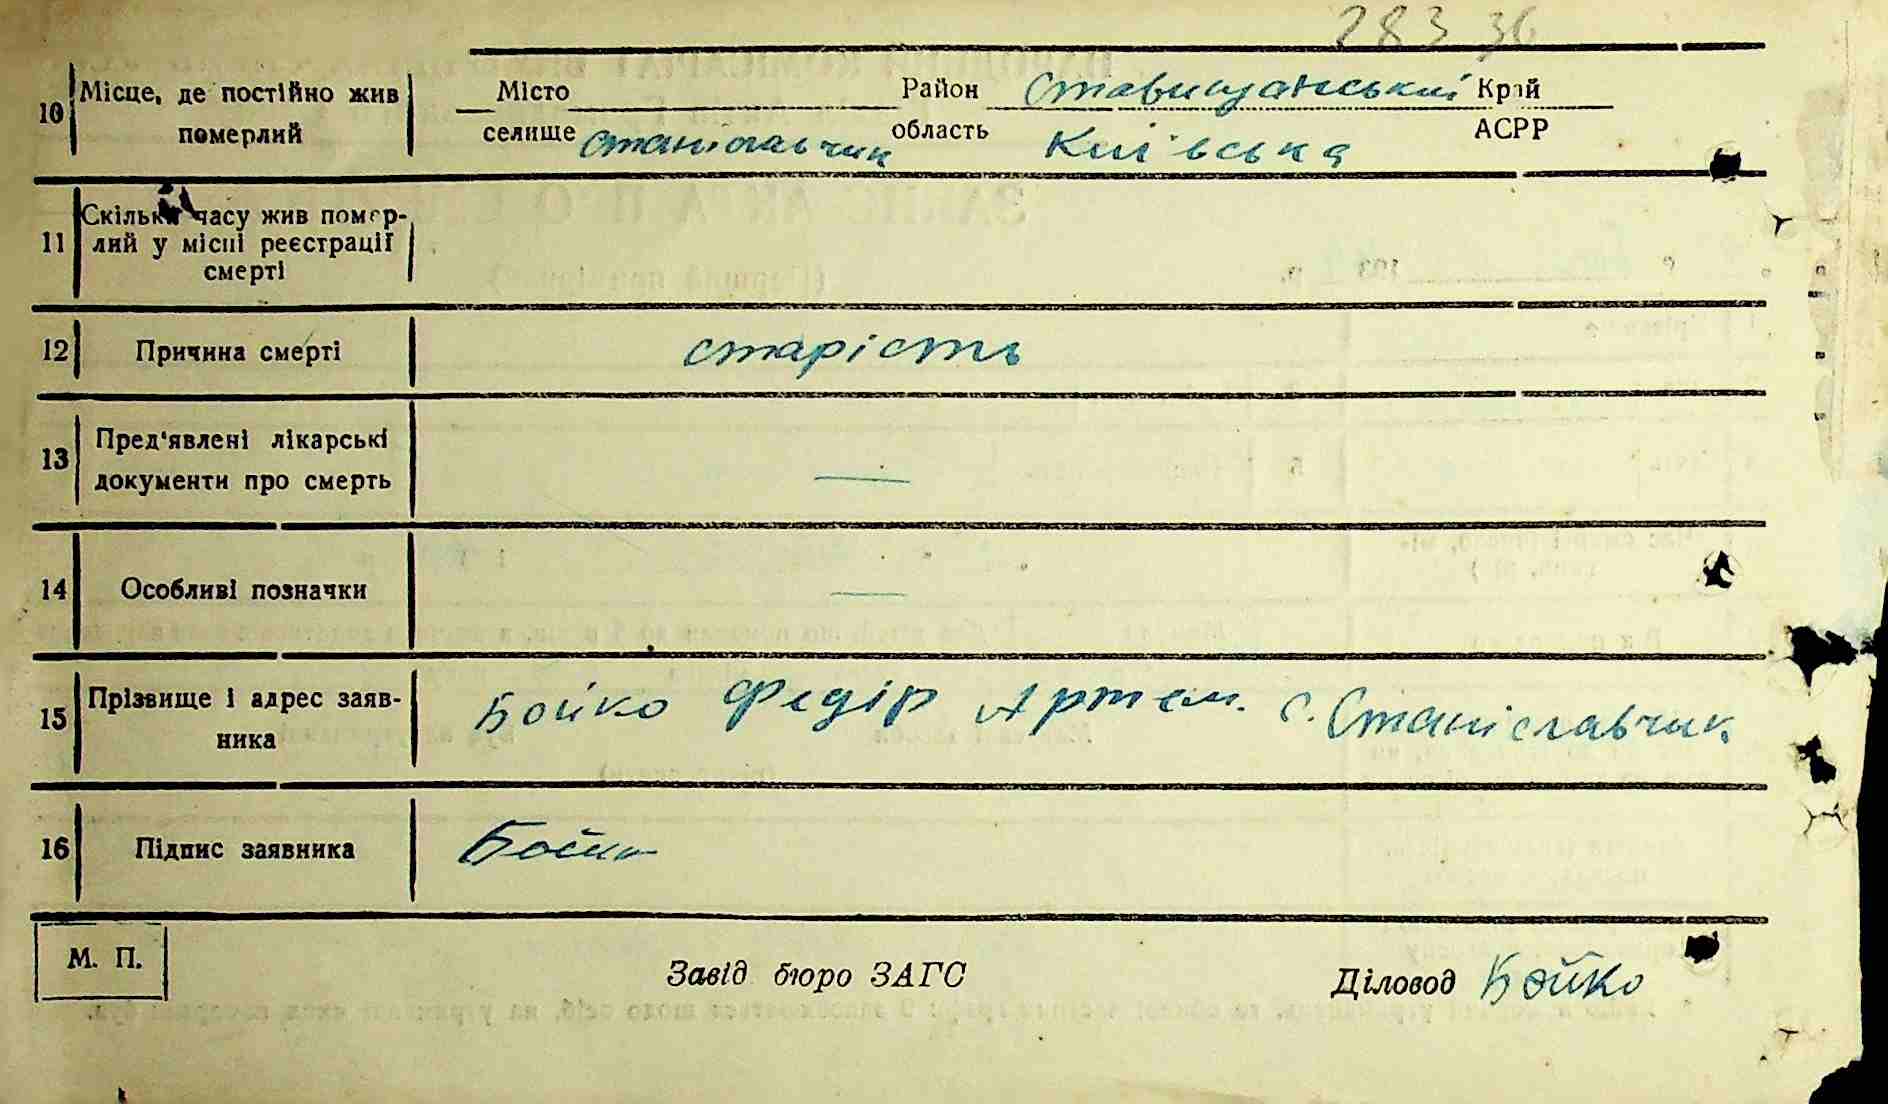 283 36
10 Місце, де постійно жив Місто Район Ставищанський Край
померлий селище Станіславчик область Київська АСРР
11 Скільки часу жив помер-
лий у місці реєстрації
смерті
12 Причина смерті старість
13 Пред'явлені лікарські
документи про смерть —
14 Особливі позначки —
15 Прізвище і адрес заяв- Бойко Федір Артем. с. Станіславчик
ника
16 Підпис заявника Бойко
М. П. Завід бюро ЗАГС Діловод Бойко